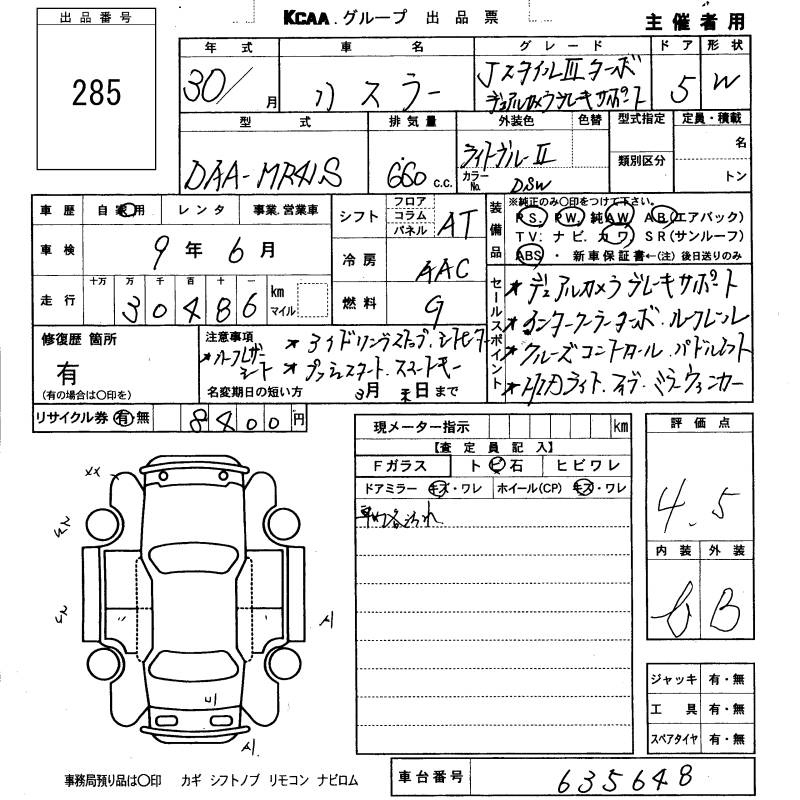 KCAA.グループ 出品票
主催者用
出品番号
285
年式 車名 グレード ドア 形状
30/ 月 ハスラー JスタイルIIIターボ 5 W
デュアルカメラブレーキサポート
型式 排気量 外装色 色替 型式指定 定員・積載
DAA-MR41S 660 c.c. 名
類別区分
カラーNo. トン
車歴 自家用 レンタ 事業.営業車
車検 9年6月
走行 十万 万 千 百 十 一
30486 km マイル
シフト フロア コラム パネル AT
冷房 AAC
燃料 G
装備品
※純正のみ○印をつけて下さい。
P S. P W. 純A W A B(エアバック)
T V: ナビ. カワ S R(サンルーフ)
ABS ・ 新車保証書←(注) 後日送りのみ
セールスポイント
★デュアルカメラブレーキサポート
★インタークーラーターボ.ルーフレール
★クルーズコントロール.パドルシフト
★HIDライト.
ミラーウィンカー
修復歴 箇所
有
(有の場合は○印を)
注意事項
★ハーフレザーシート
★アイドリングストップ.シートヒーター
★プッシュスタート.スマートキー
名変期日の短い方 3月末日まで
リサイクル券 有 無 8400円
現メーター指示 km
【査定員記入】
Fガラス トビ石 ヒビワレ
ドアミラー キズ・ワレ ホイール(CP) キズ・ワレ
評価点
4.5
内装 外装
B
ジャッキ 有・無
工具 有・無
スペアタイヤ 有・無
XX
事務局預り品は○印 カギ シフトノブ リモコン ナビロム
車台番号 635648